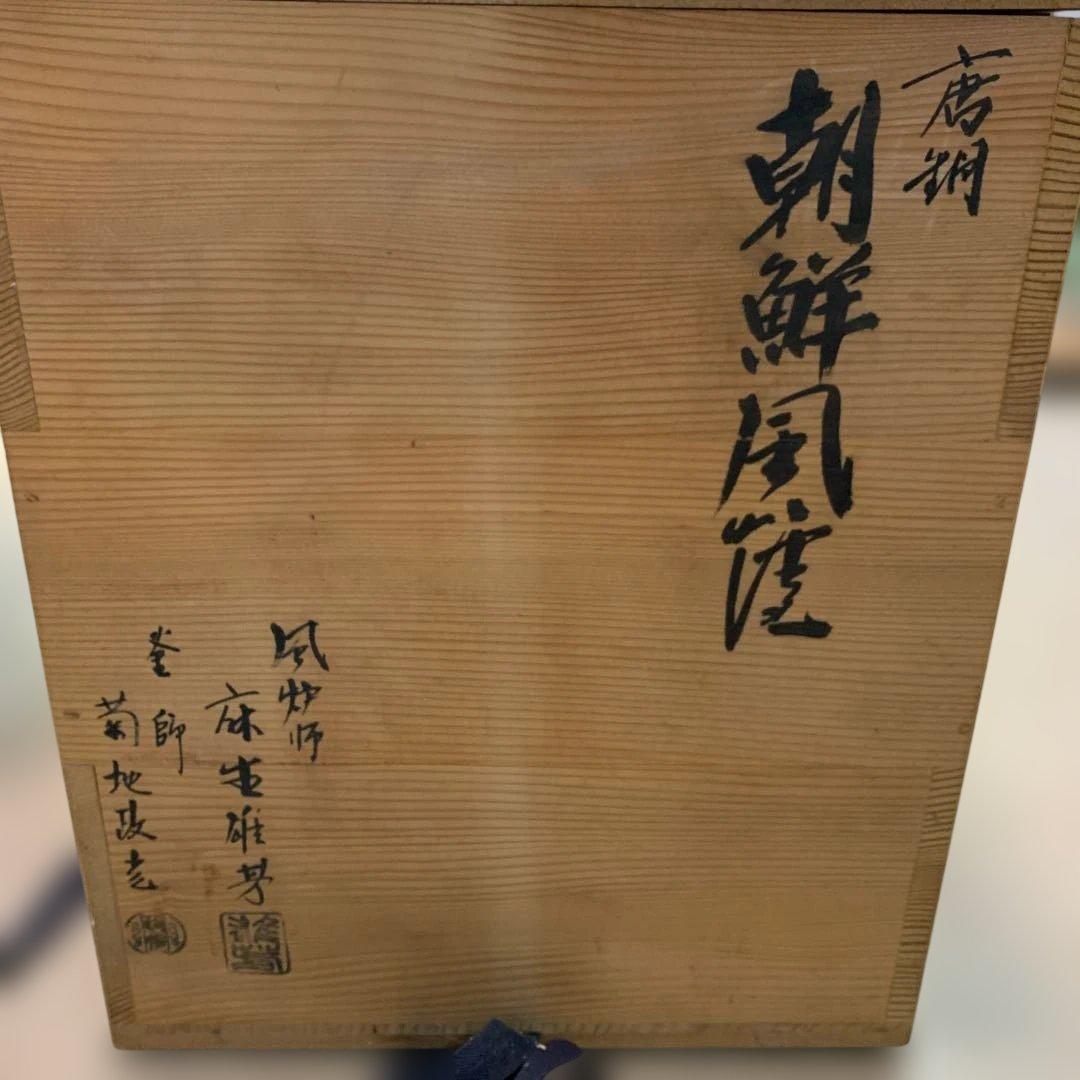 唐銅
朝鮮風爐
風炉師
麻生雄
釜師
菊地政光